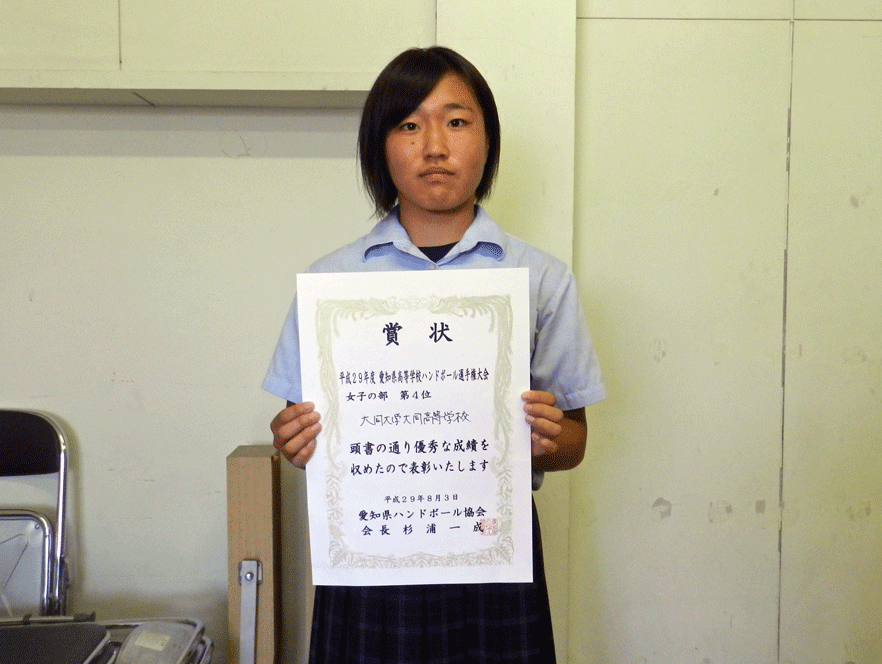 賞状
平成29年度 愛知県高等学校ハンドボール選手権大会
女子の部 第4位
大同大学大同高等学校
頭書の通り優秀な成績を
収めたので表彰いたします
平成29年8月3日
愛知県ハンドボール協会
会長 杉浦一成